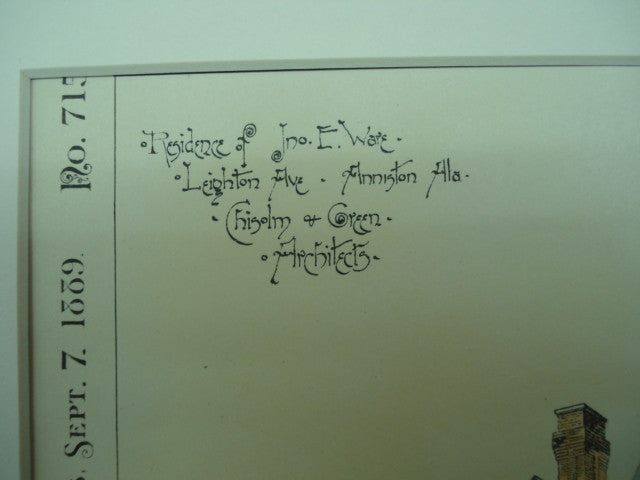 Residence of Jno. E. Ware.
Leighton Ave. Anniston Ala.
Chisolm & Green.
Architects.
Sept. 7. 1889. No. 715